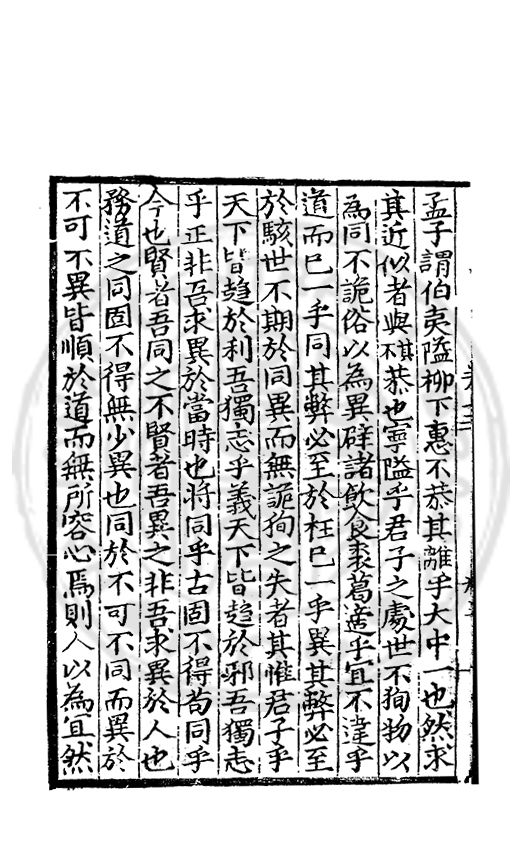 孟子謂伯夷隘柳下惠不恭其離乎大中一也然求
其近似者與其不恭也寧隘乎君子之處世不狥物以
為同不詭俗以為異辟諸飲食裘葛適乎宜不違乎
道而已一乎同其弊必至於枉已一乎異其弊必至
於駭世不期於同異而無詭狥之失者其惟君子乎
天下皆趨於利吾獨志乎義天下皆趨於邪吾獨志
乎正非吾求異於當時也將同乎古固不得苟同乎
今也賢者吾同之不賢者吾異之非吾求異於人也
務道之同固不得無少異也同於不可不同而異於
不可不異皆順於道而無所容心焉則人以為宜然